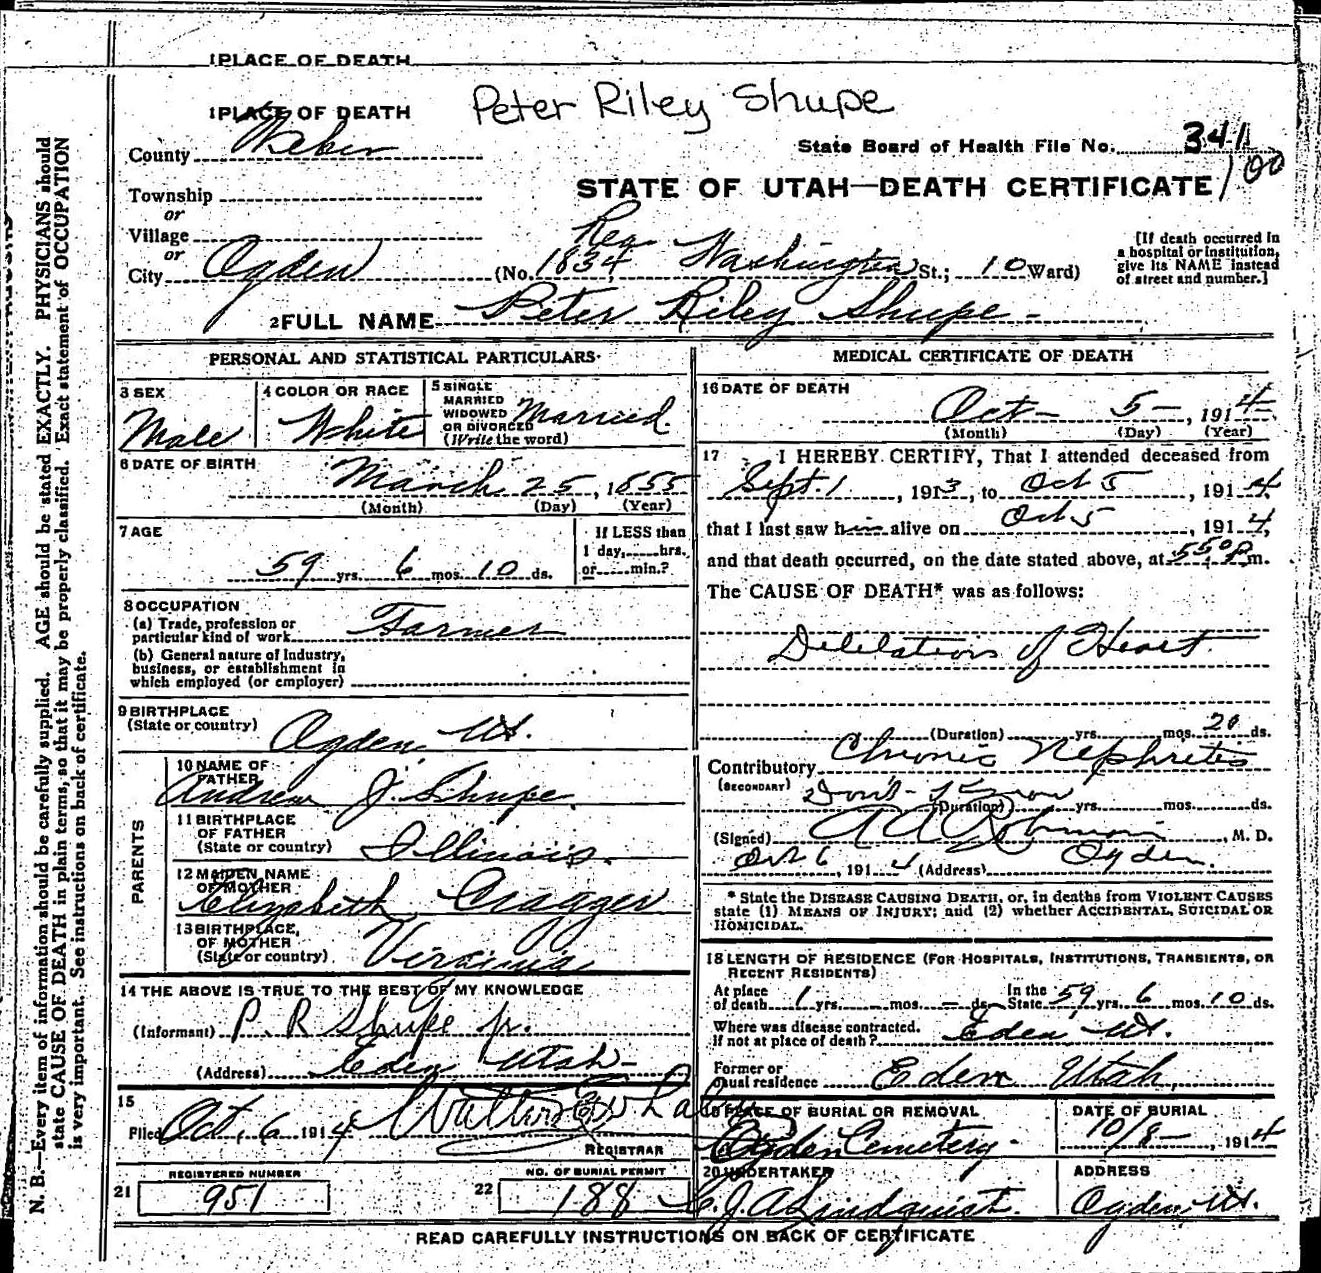 1 PLACE OF DEATH
Peter Riley Shupe
1 PLACE OF DEATH
County Weber
State Board of Health File No. 341
100
Township
STATE OF UTAH—DEATH CERTIFICATE
or
Village
or
City Ogden (No. Rea 1834 Washington St.; 10 Ward)
[If death occurred in a hospital or institution, give its NAME instead of street and number.]
2 FULL NAME Peter Riley Shupe
PERSONAL AND STATISTICAL PARTICULARS
3 SEX Male
4 COLOR OR RACE White
5 SINGLE MARRIED WIDOWED OR DIVORCED (Write the word) Married.
6 DATE OF BIRTH March 25, 1855
(Month) (Day) (Year)
7 AGE
59 yrs. 6 mos. 10 ds.
If LESS than 1 day,......hrs. or......min.?
8 OCCUPATION
(a) Trade, profession or particular kind of work Farmer
(b) General nature of Industry, business, or establishment in which employed (or employer)
9 BIRTHPLACE
(State or country) Ogden Ut.
PARENTS
10 NAME OF FATHER
Andrew J. Shupe.
11 BIRTHPLACE OF FATHER
(State or country) Illinois.
12 MAIDEN NAME OF MOTHER
Elizabeth Cragger
13 BIRTHPLACE, OF MOTHER
(State or country) Virginia
14 THE ABOVE IS TRUE TO THE BEST OF MY KNOWLEDGE
(Informant) P. R Shupe Jr.
(Address) Eden Utah
15
Filed Oct. 6 1914
REGISTRAR
REGISTERED NUMBER
21 951
NO. OF BURIAL PERMIT
22 188
MEDICAL CERTIFICATE OF DEATH
16 DATE OF DEATH
Oct- 5-, 1914
(Month) (Day) (Year)
17 I HEREBY CERTIFY, That I attended deceased from
Sept. 1, 1913, to Oct 5, 1914
that I last saw him alive on Oct 5, 1914,
and that death occurred, on the date stated above, at 5 50 P m.
The CAUSE OF DEATH* was as follows:
Dilelation of Heart.
(Duration) yrs. mos. 20 ds.
Contributory Chronic Nephretis
(SECONDARY) Don't Know
(Duration) yrs. mos. ds.
(Signed) A A Robinson, M. D.
Oct 6, 1914 (Address) Ogden.
* State the DISEASE CAUSING DEATH, or, in deaths from VIOLENT CAUSES
state (1) MEANS OF INJURY; and (2) whether ACCIDENTAL, SUICIDAL OR
HOMICIDAL.
18 LENGTH OF RESIDENCE (FOR HOSPITALS, INSTITUTIONS, TRANSIENTS, OR
RECENT RESIDENTS)
At place of death 1 yrs. - mos. - ds. In the State 59 yrs. 6 mos. 10 ds.
Where was disease contracted. If not at place of death? Eden, Ut.
Former or usual residence Eden Utah,
19 PLACE OF BURIAL OR REMOVAL
Ogden Cemetery.
DATE OF BURIAL
10/8-, 1914
20 UNDERTAKER
C. J. A Lindquist.
ADDRESS
Ogden, Ut.
READ CAREFULLY INSTRUCTIONS ON BACK OF CERTIFICATE
N. B.—Every item of information should be carefully supplied. AGE should be stated EXACTLY. PHYSICIANS should
state CAUSE OF DEATH in plain terms, so that it may be properly classified. Exact statement of OCCUPATION
is very important. See instructions on back of certificate.